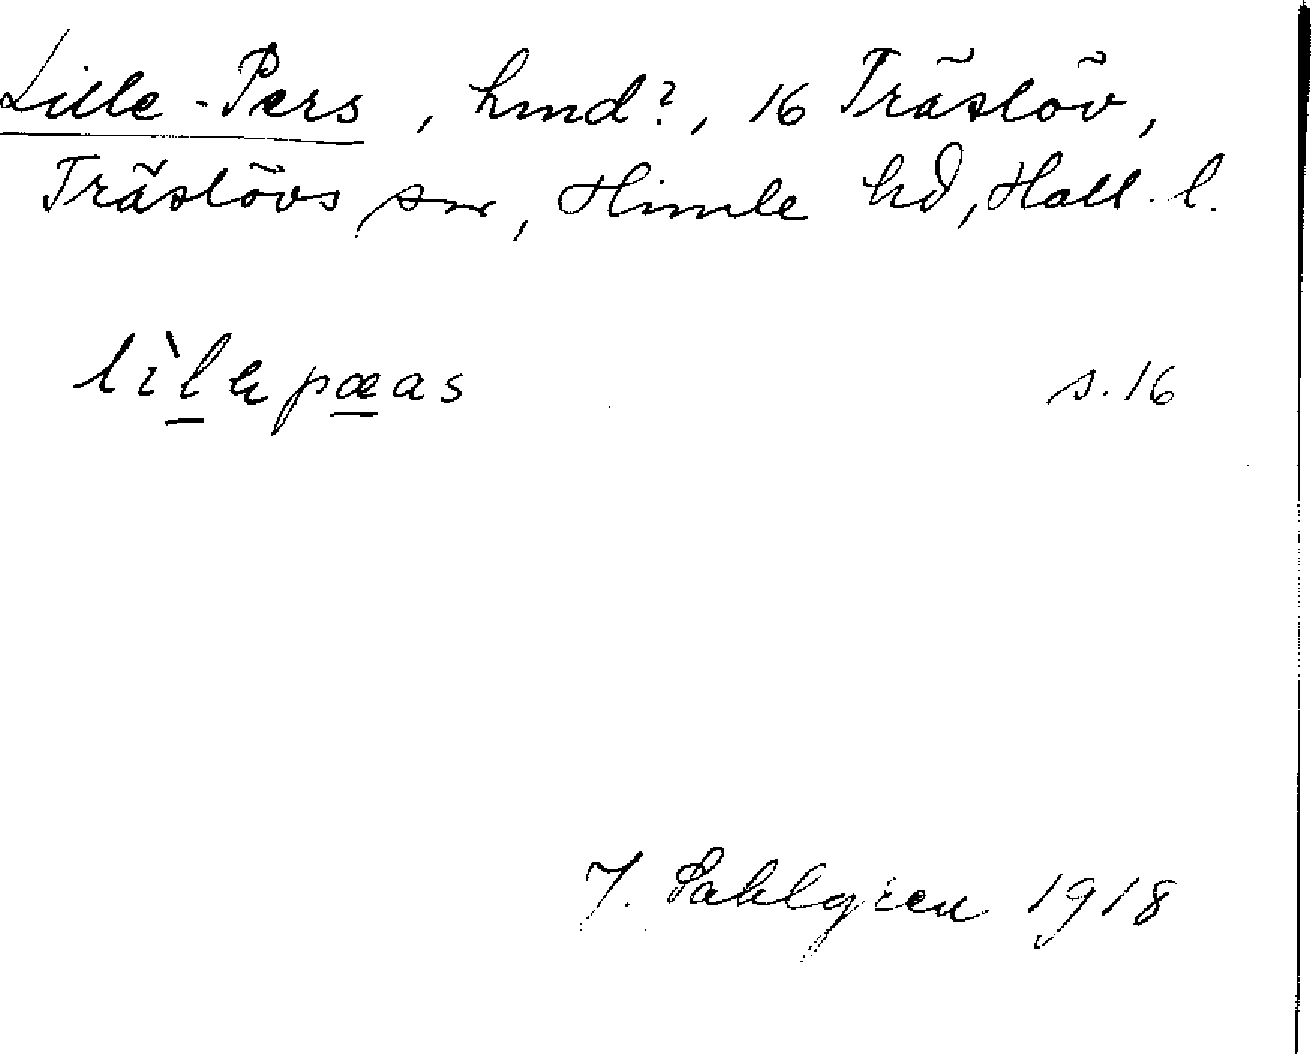 Lille-Pers, hmd?, 16 Träslöv,
Träslövs sn, Himle hd, Hall. l.
lìlepæas s.16
J. Sahlgren 1918